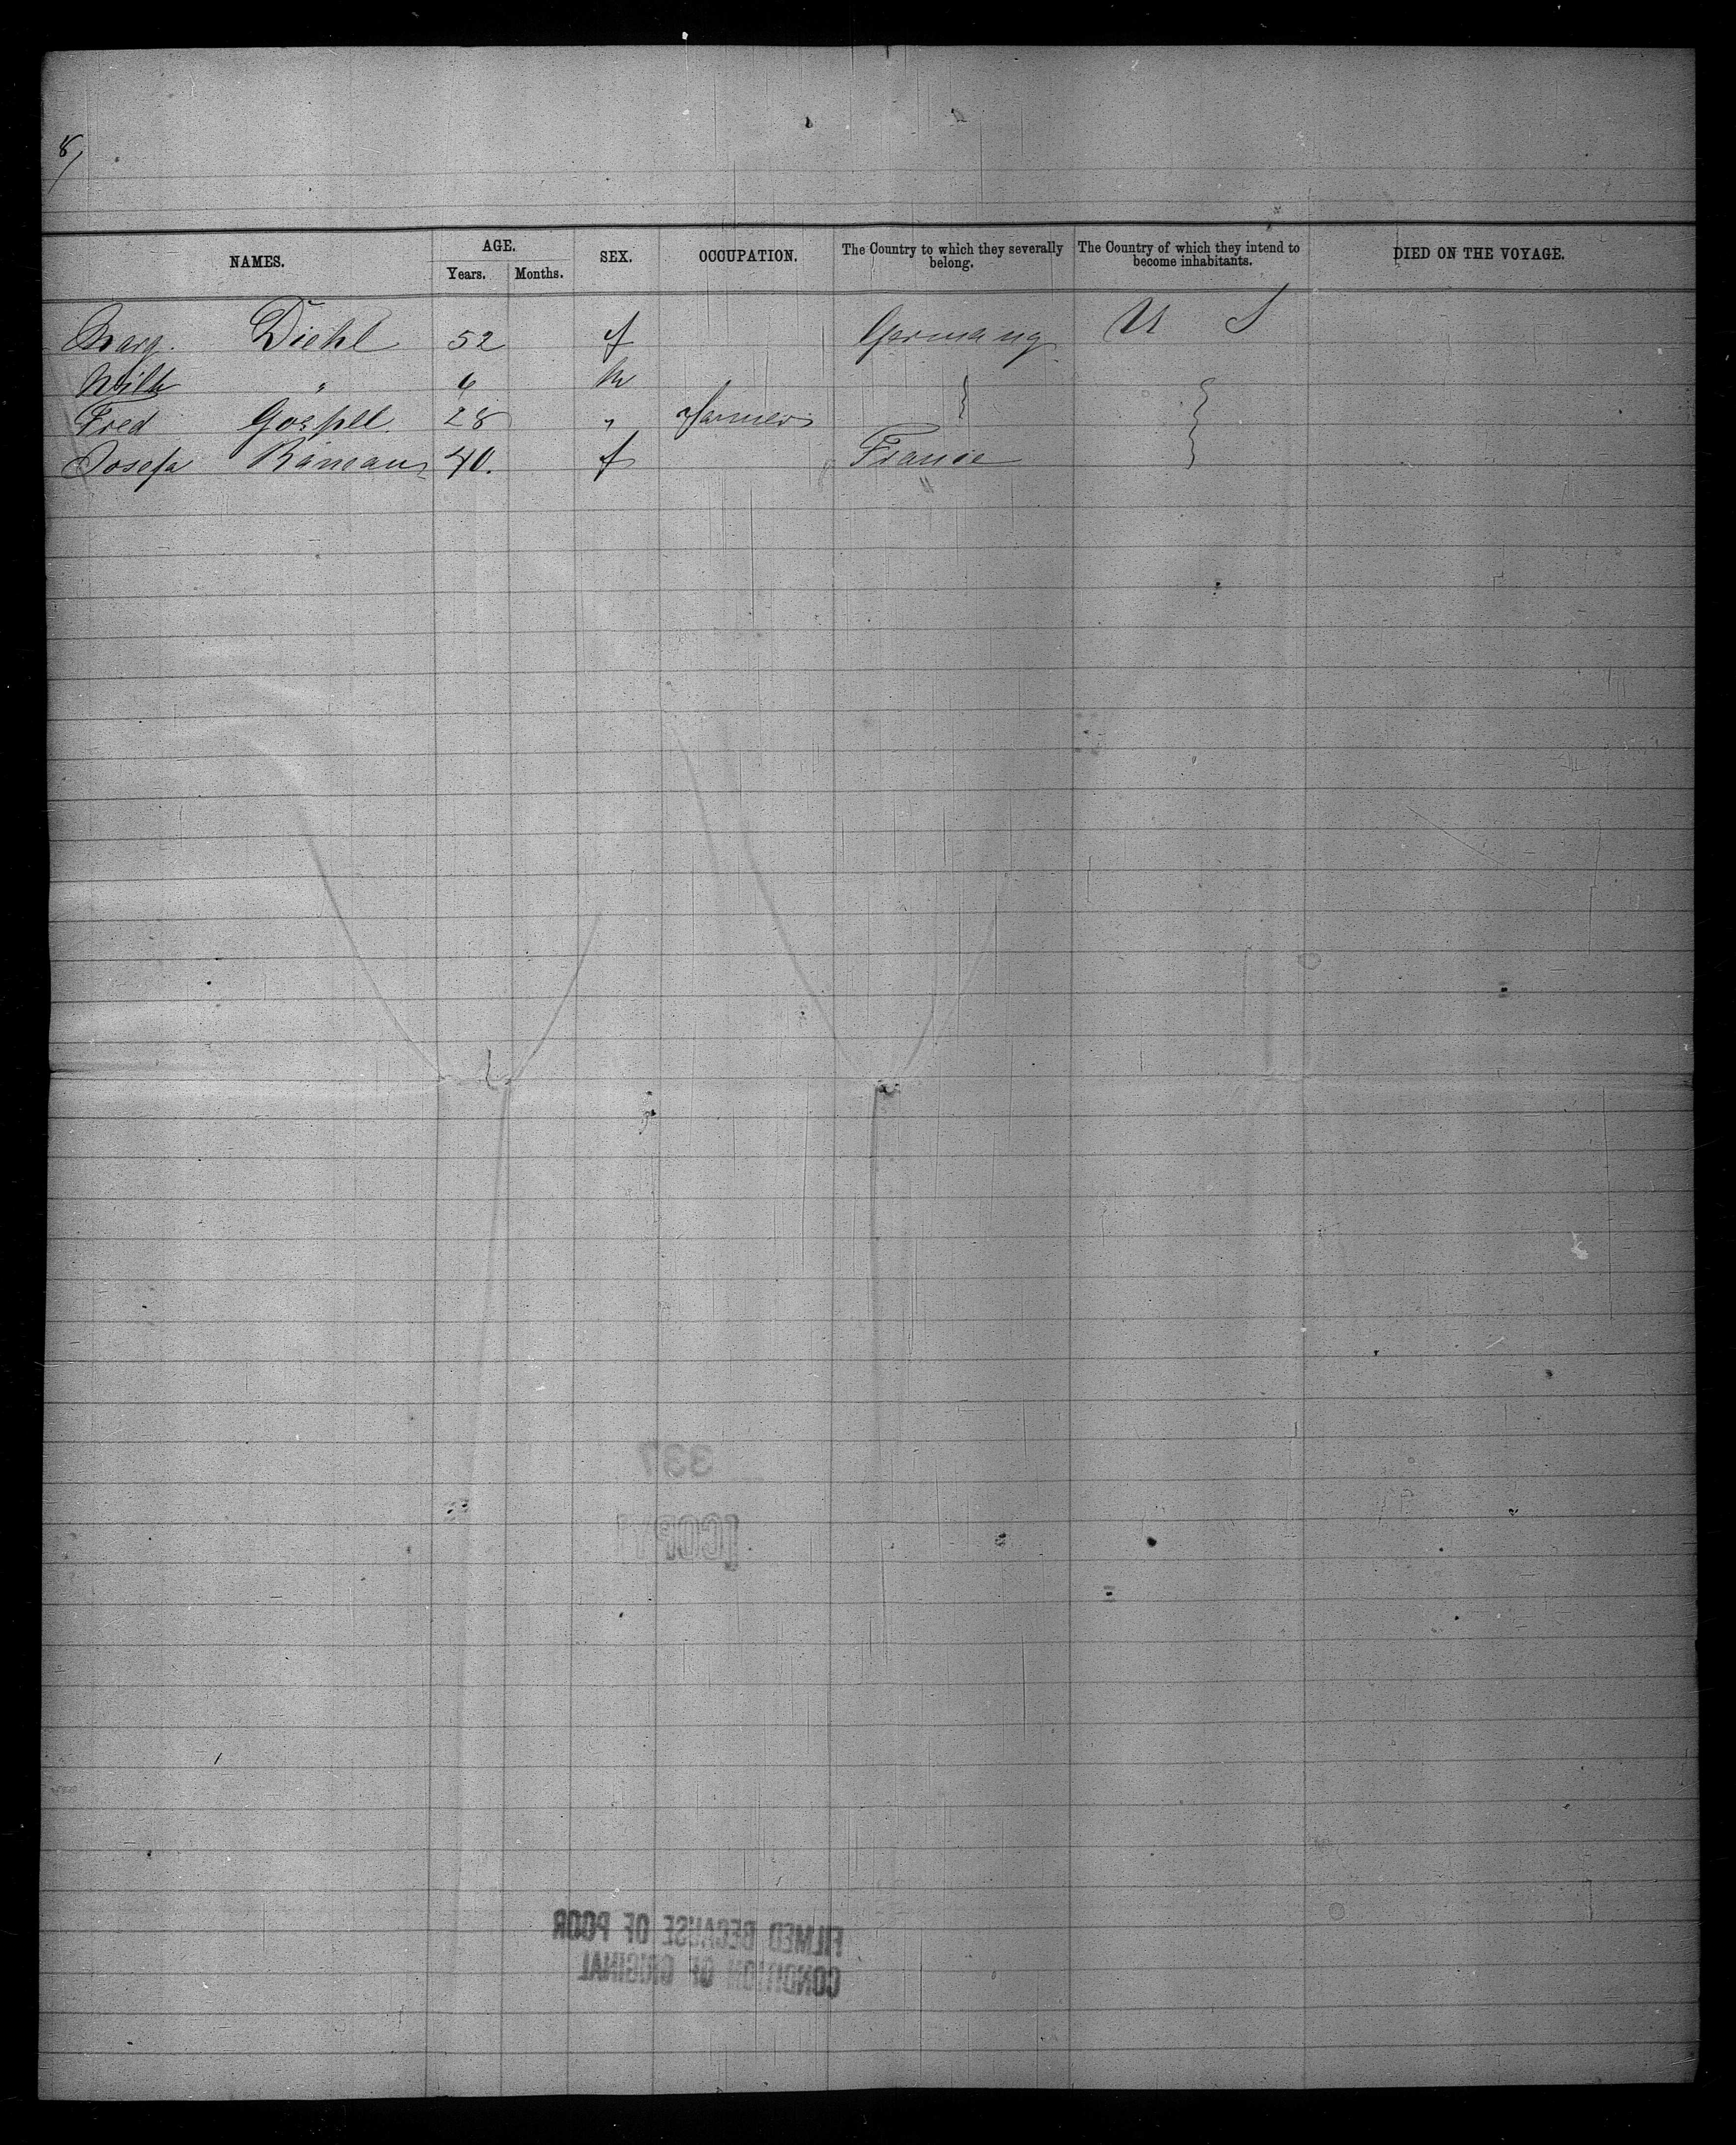 8/
NAMES. AGE. SEX. OCCUPATION. The Country to which they severally belong. The Country of which they intend to become inhabitants. DIED ON THE VOYAGE.
Years. Months.
Marg. Diehl 52 f Germany U S
Wilh " 6 m
Fred Goepell 28 " farmer
Josefa 40. f France
"
337
[COPY]
FILMED BECAUSE OF POOR
CONDITION OF ORIGINAL